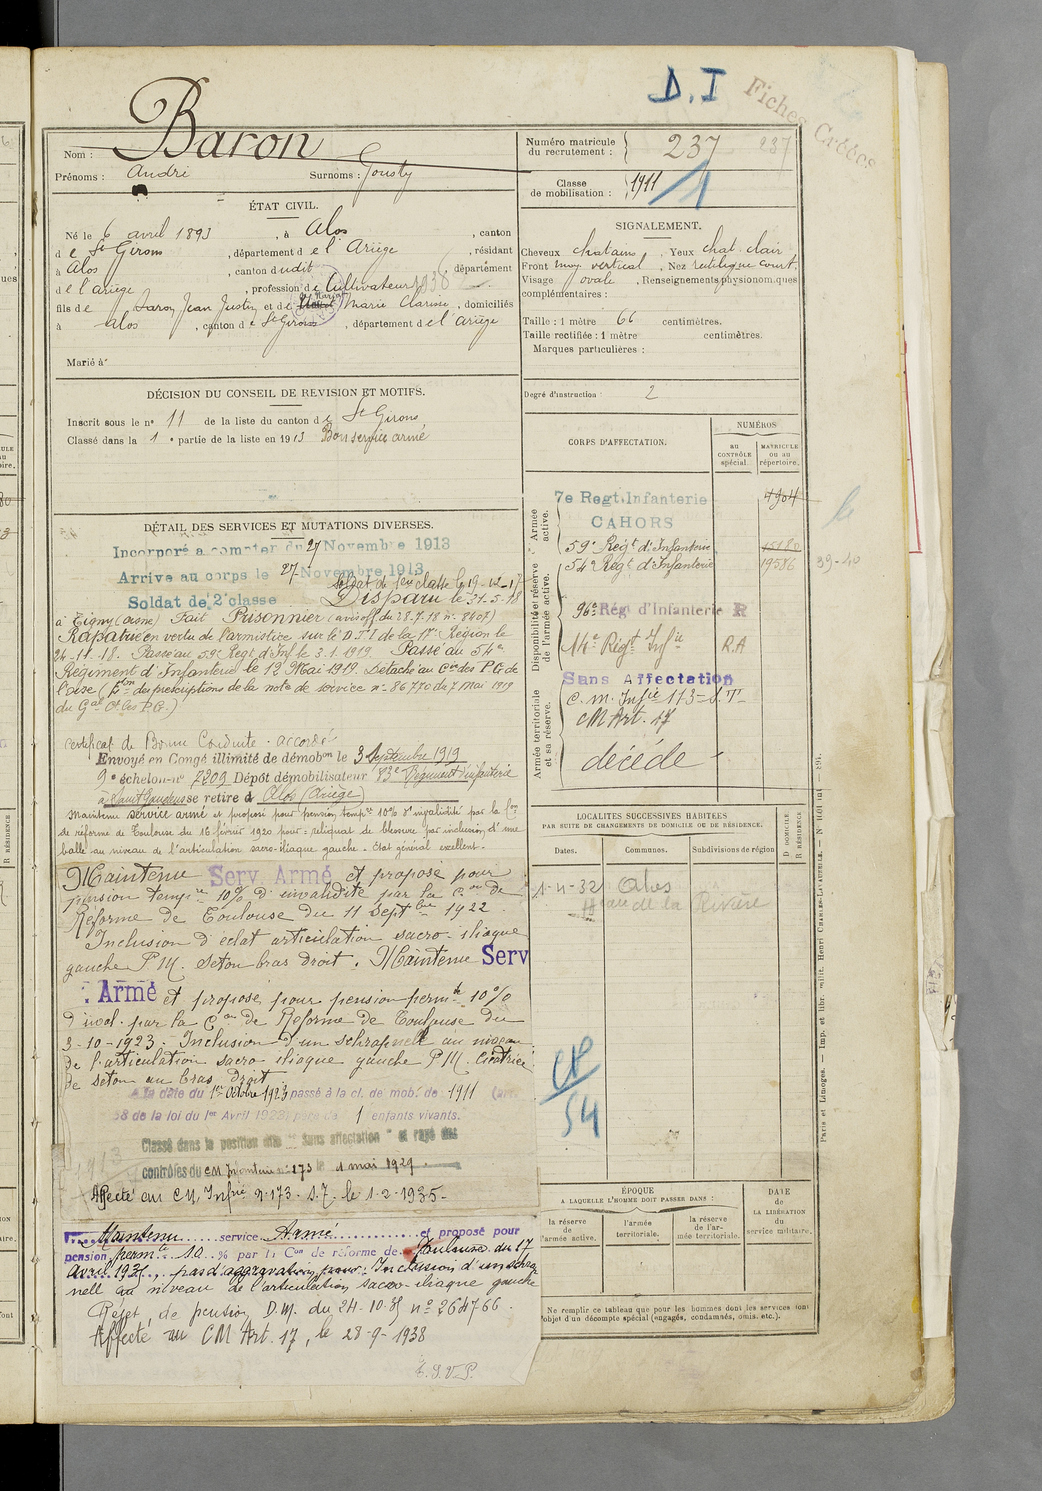 D.I
Fiches Créées
Nom : Baron
Prénoms : André Surnoms : Jousty
Numéro matricule du recrutement : 237 237
Classe de mobilisation : 1911 1
ÉTAT CIVIL.
Né le 6 avril 1893, à Alos, canton
de St Girons, département de l'Ariège, résidant
à Alos, canton dudit, département
de l'ariège, profession de Cultivateur
fils de Baron Jean Justin et de Marie Clarisse, domiciliés
à alos, canton de St Girons, département de l'ariège
Marié à
SIGNALEMENT.
Cheveux chatains, Yeux chat. clair
Front moy. vertical, Nez rectiligne court.
Visage ovale, Renseignements physionomiques
complémentaires :
Taille : 1 mètre 66 centimètres.
Taille rectifiée : 1 mètre centimètres.
Marques particulières :
Degré d'instruction : 2
DÉCISION DU CONSEIL DE REVISION ET MOTIFS.
Inscrit sous le n° 11 de la liste du canton de St Girons
Classé dans la 1e partie de la liste en 1913 Bon service armé
DÉTAIL DES SERVICES ET MUTATIONS DIVERSES.
Incorporé a compter du 27 Novembre 1913
Arrive au corps le 27 Novembre 1913
Soldat de 2e classe
Soldat de 1ère classe le 19-12-17
Disparu le 31-5-18
à Tigny (aisne) Fait Prisonnier (avis off du 28.7.18 n° 8407)
Rapatrié en vertu de l'armistice sur le D.T.I de la 17e Région le
24-11-18. Passé au 59e Régt d'Inf le 3.1.1919. Passé au 54e
Régiment d'Infanterie le 12 Mai 1919. Détaché au Con des P.G de
l'oise (Eon des prescriptions de la note de service n° 86770 du 7 Mai 1919
du Gal Ct les P.G.)
Certificat de Bonne Conduite : accordé
Envoyé en Congé illimité de démobon le 3 Septembre 1919
9e échelon n° 7209 Dépôt démobilisateur 83e Régiment d'infanterie
à Saint Gaudens se retire à Alos (Ariège)
Maintenu service armé et proposé pour pension tempre 10% d'invalidité par la Con
de réforme de Toulouse du 16 février 1920 pour : reliquat de blessure par inclusion d'une
balle au niveau de l'articulation sacro-iliaque gauche. Etat général excellent.
Maintenu Serv. Armé et proposé pour
pension tempre 10% d'invalidité par la Con de
Réforme de Toulouse du 11 Septbre 1922
Inclusion d'éclat articulation sacro-iliaque
gauche P.M. Seton bras droit. Maintenu Serv
Armé et proposé pour pension permte 10%
d'inval. par la Con de Réforme de Toulouse du
3-10-1923. Inclusion d'un schrapnell au niveau
de l'articulation sacro iliaque gauche P.M. Cicatrice
de seton au bras droit.
A la date du 1er Octobre 1923 passé à la cl. de mob. de 1911 (art.
58 de la loi du 1er Avril 1923, père de 1 enfants vivants.
Classé dans la position dite "Sans affectation" et rayé des
contrôles du CM frontière n° 173 le 1 mai 1929
Affecté au CM Infie n° 173 S.T. le 1-2-1935-
Maintenu service Armé et proposé pour
pension permte 10 % par la Con de réforme de Toulouse du 17
Avril 1935, pas d'aggravation pour : Inclusion d'un schrap
nell au niveau de l'articulation sacro-iliaque gauche
Rejet de pension D.M. du 24-10-35 n° 264766.
Affecté au CM Art. 17, le 28-9-1938
T.S.V.P.
CORPS D'AFFECTATION.
NUMÉROS
au CONTRÔLE spécial.
MATRICULE ou au répertoire.
Armée active.
7e Regt Infanterie 4904
CAHORS
59e Régt d'Infanterie 15180
Disponibilité et réserve de l'armée active.
54e Régt d'Infanterie 19586 39-40
96e Régt d'Infanterie R
14e Régt Infie R.A
Armée territoriale et sa réserve.
Sans Affectation
C.M. Infie 173-S.T-
CM Art. 17
décédé
LOCALITÉS SUCCESSIVES HABITÉES
PAR SUITE DE CHANGEMENTS DE DOMICILE OU DE RÉSIDENCE.
Dates. Communes. Subdivisions de région
D DOMICILE R RÉSIDENCE
1-4-32 Alos
Hau de la Rivière
CP
54
ÉPOQUE
A LAQUELLE L'HOMME DOIT PASSER DANS :
la réserve de l'armée active.
l'armée territoriale.
la réserve de l'armée territoriale.
DATE de LA LIBÉRATION du service militaire.
Ne remplir ce tableau que pour les hommes dont les services font
l'objet d'un décompte spécial (engagés, condamnés, omis, etc.).
Paris et Limoges. — Imp. et libr. milit. Henri CHARLES-LAVAUZELLE.